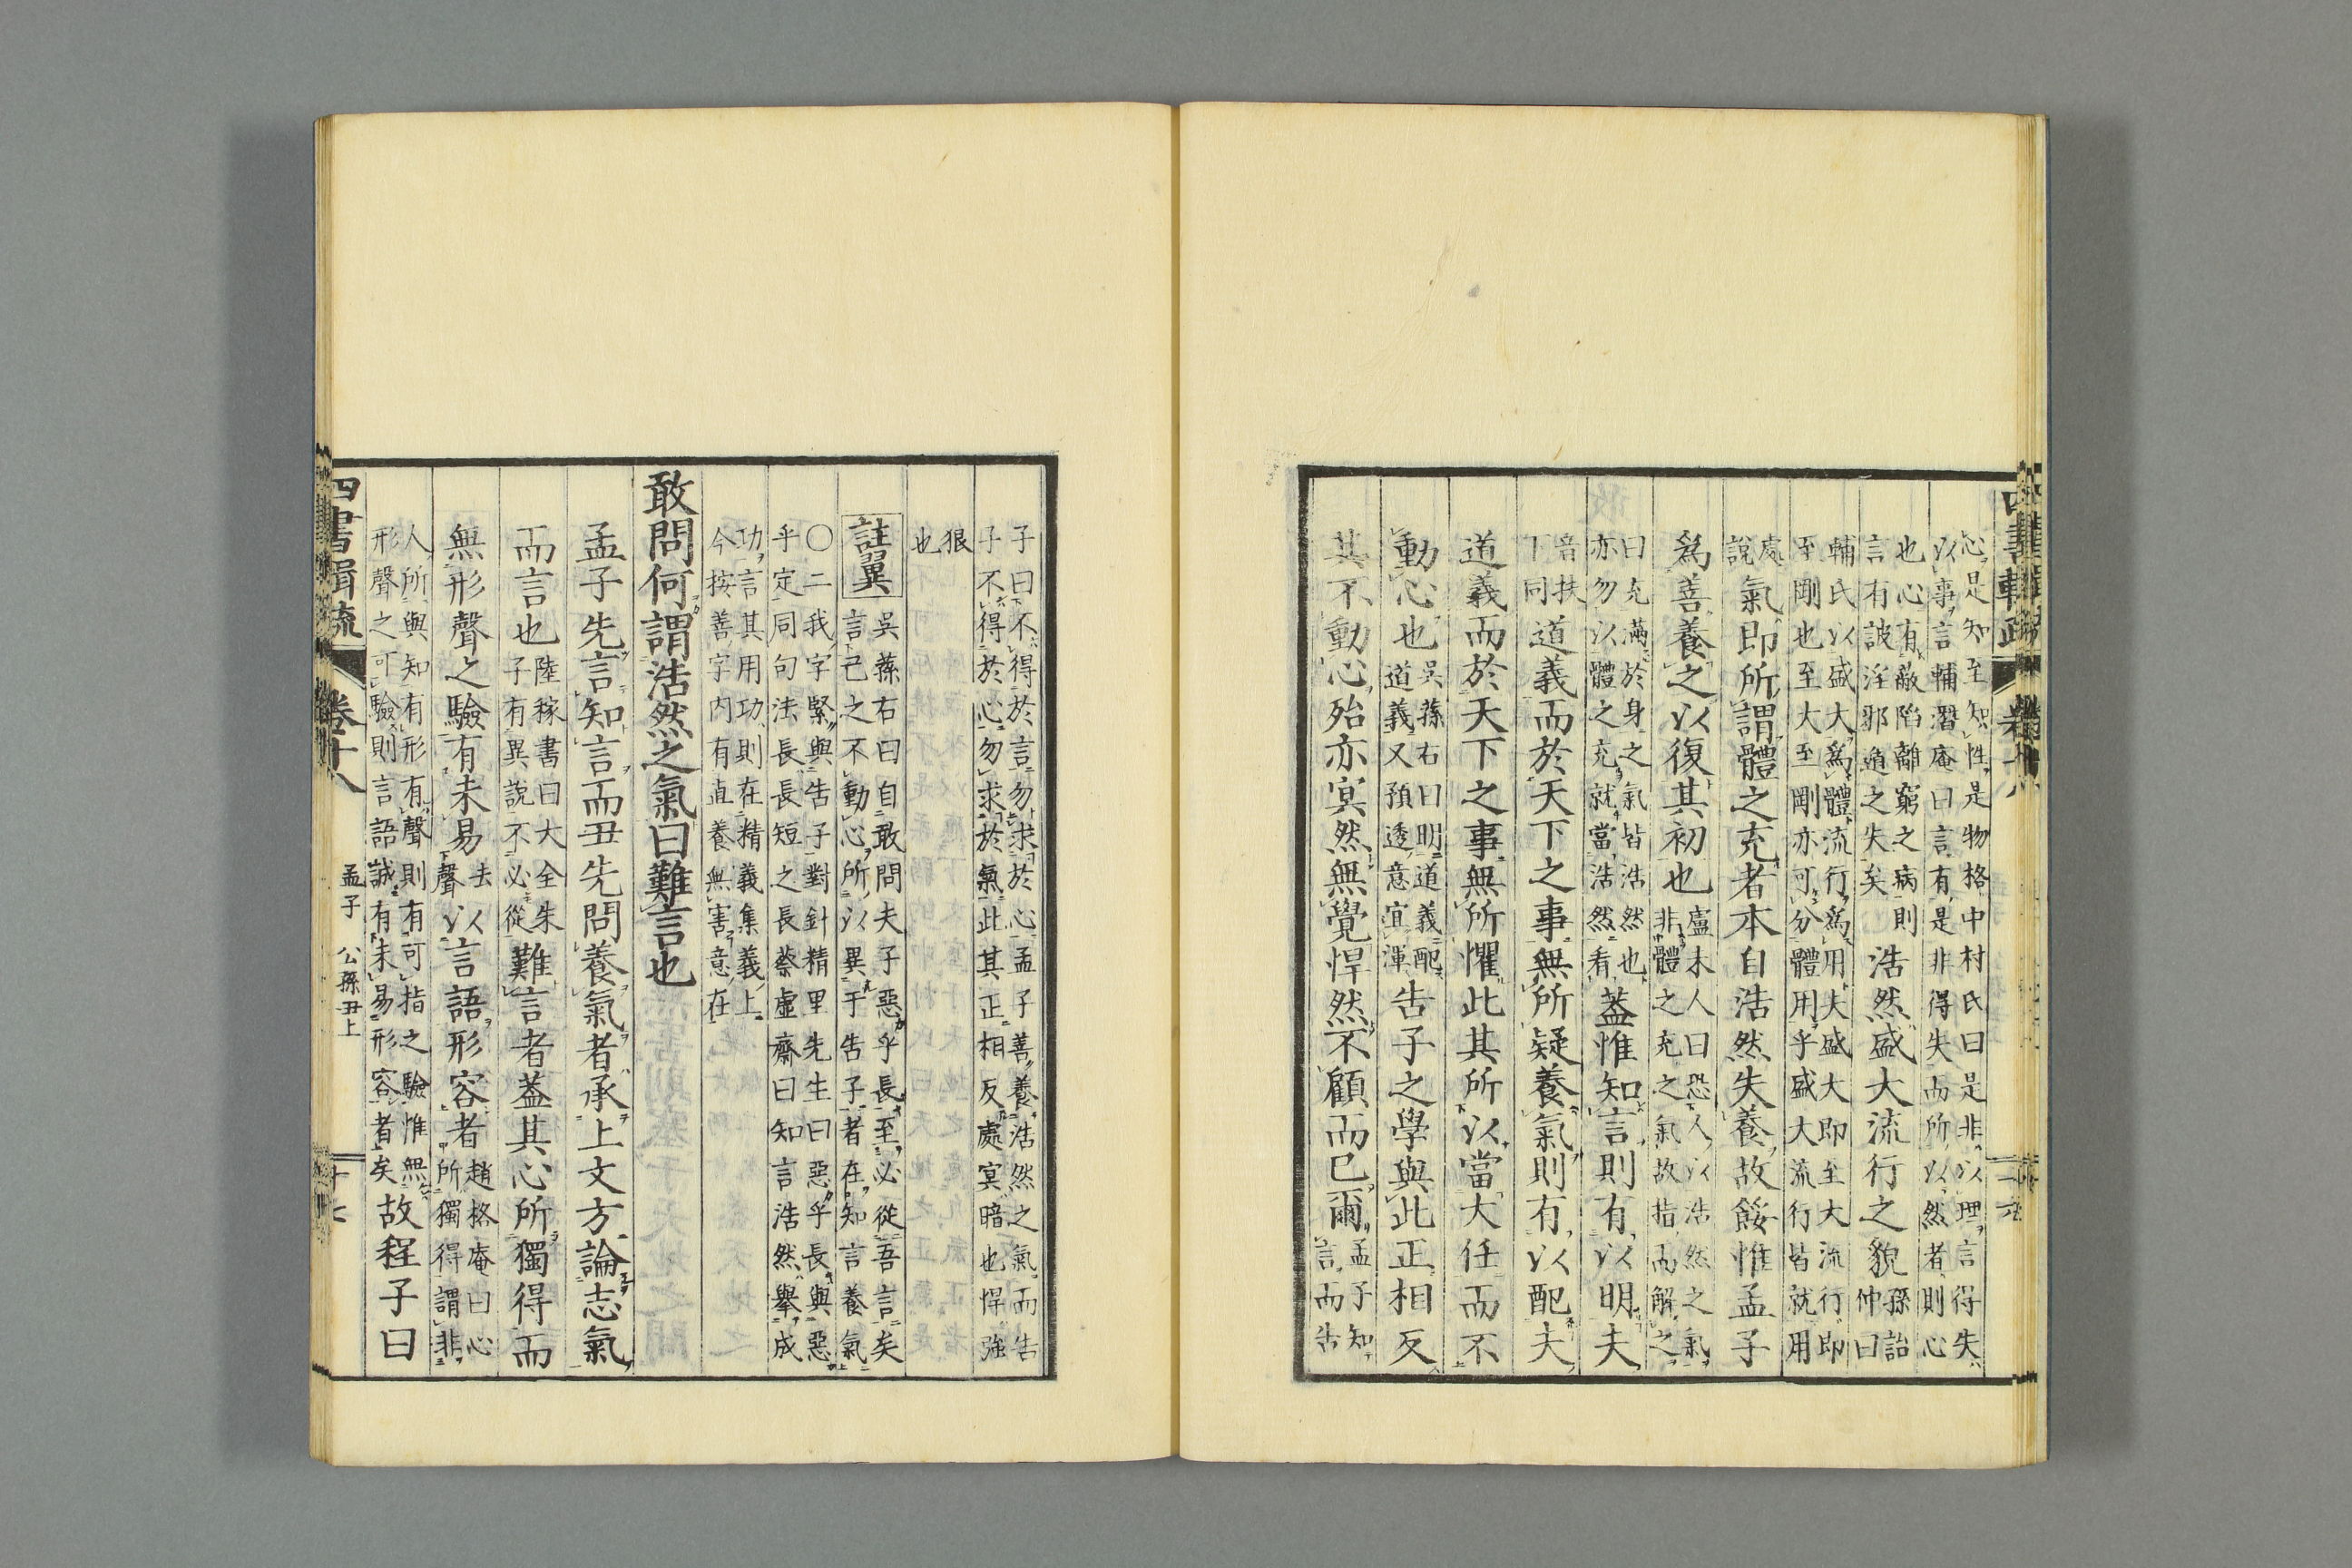 心是知至知性是物格中村氏曰是非以理言得失
以事言輔潛庵曰言有是非得失而所以然者則心
也心有蔽陷離窮之病則
言有詖淫邪遁之失矣
浩然盛大流行之貌
孫詒
仲曰
輔氏以盛大爲體流行爲用夫盛大即至大流行即
至剛也至大至剛亦可分體用乎盛大流行皆就用
處
說
氣即所謂體之充者本自浩然失養故餒惟孟子
爲善養之以復其初也
盧未人曰恐人以浩然之氣
非體之充之氣故指而解之
曰充滿於身之氣皆浩然也
亦勿以體之充就當浩然看
蓋惟知言則有以明夫
音扶
下同
道義而於天下之事無所疑養氣則有以配夫
道義而於天下之事無所懼此其所以當大任而不
動心也
吳蓀右曰明道義配
道義又預透意宜渾
告子之學與此正相反
其不動心殆亦冥然無覺悍然不顧而已爾
孟子知
言而告
子曰不得於言勿求於心孟子善養浩然之氣而告
子不得於心勿求於氣此其正相反處冥暗也悍強
狠
也
註翼
吳蓀右曰自敢問夫子惡乎長至必從吾言矣
言己之不動心所以異于告子者在知言養氣
〇二我字緊與告子對針精里先生曰惡乎長與惡
乎定同句法長長短之長蔡虛齋曰知言浩然舉成
功言其用功則在精義集義上
今按善字內有直養無害意在
敢問何謂浩然之氣曰難言也
孟子先言知言而丑先問養氣者承上文方論志氣
而言也
陸稼書曰大全朱
子有異說不必從
難言者蓋其心所獨得而
無形聲之驗有未易
去
聲
以言語形容者
趙格庵曰心
所獨得謂非
人所與知有形有聲則有可指之驗惟無
形聲之可驗則言語誠有未易形容者矣
故程子曰
四書輯疏
卷十八
孟子 公孫丑上
十七